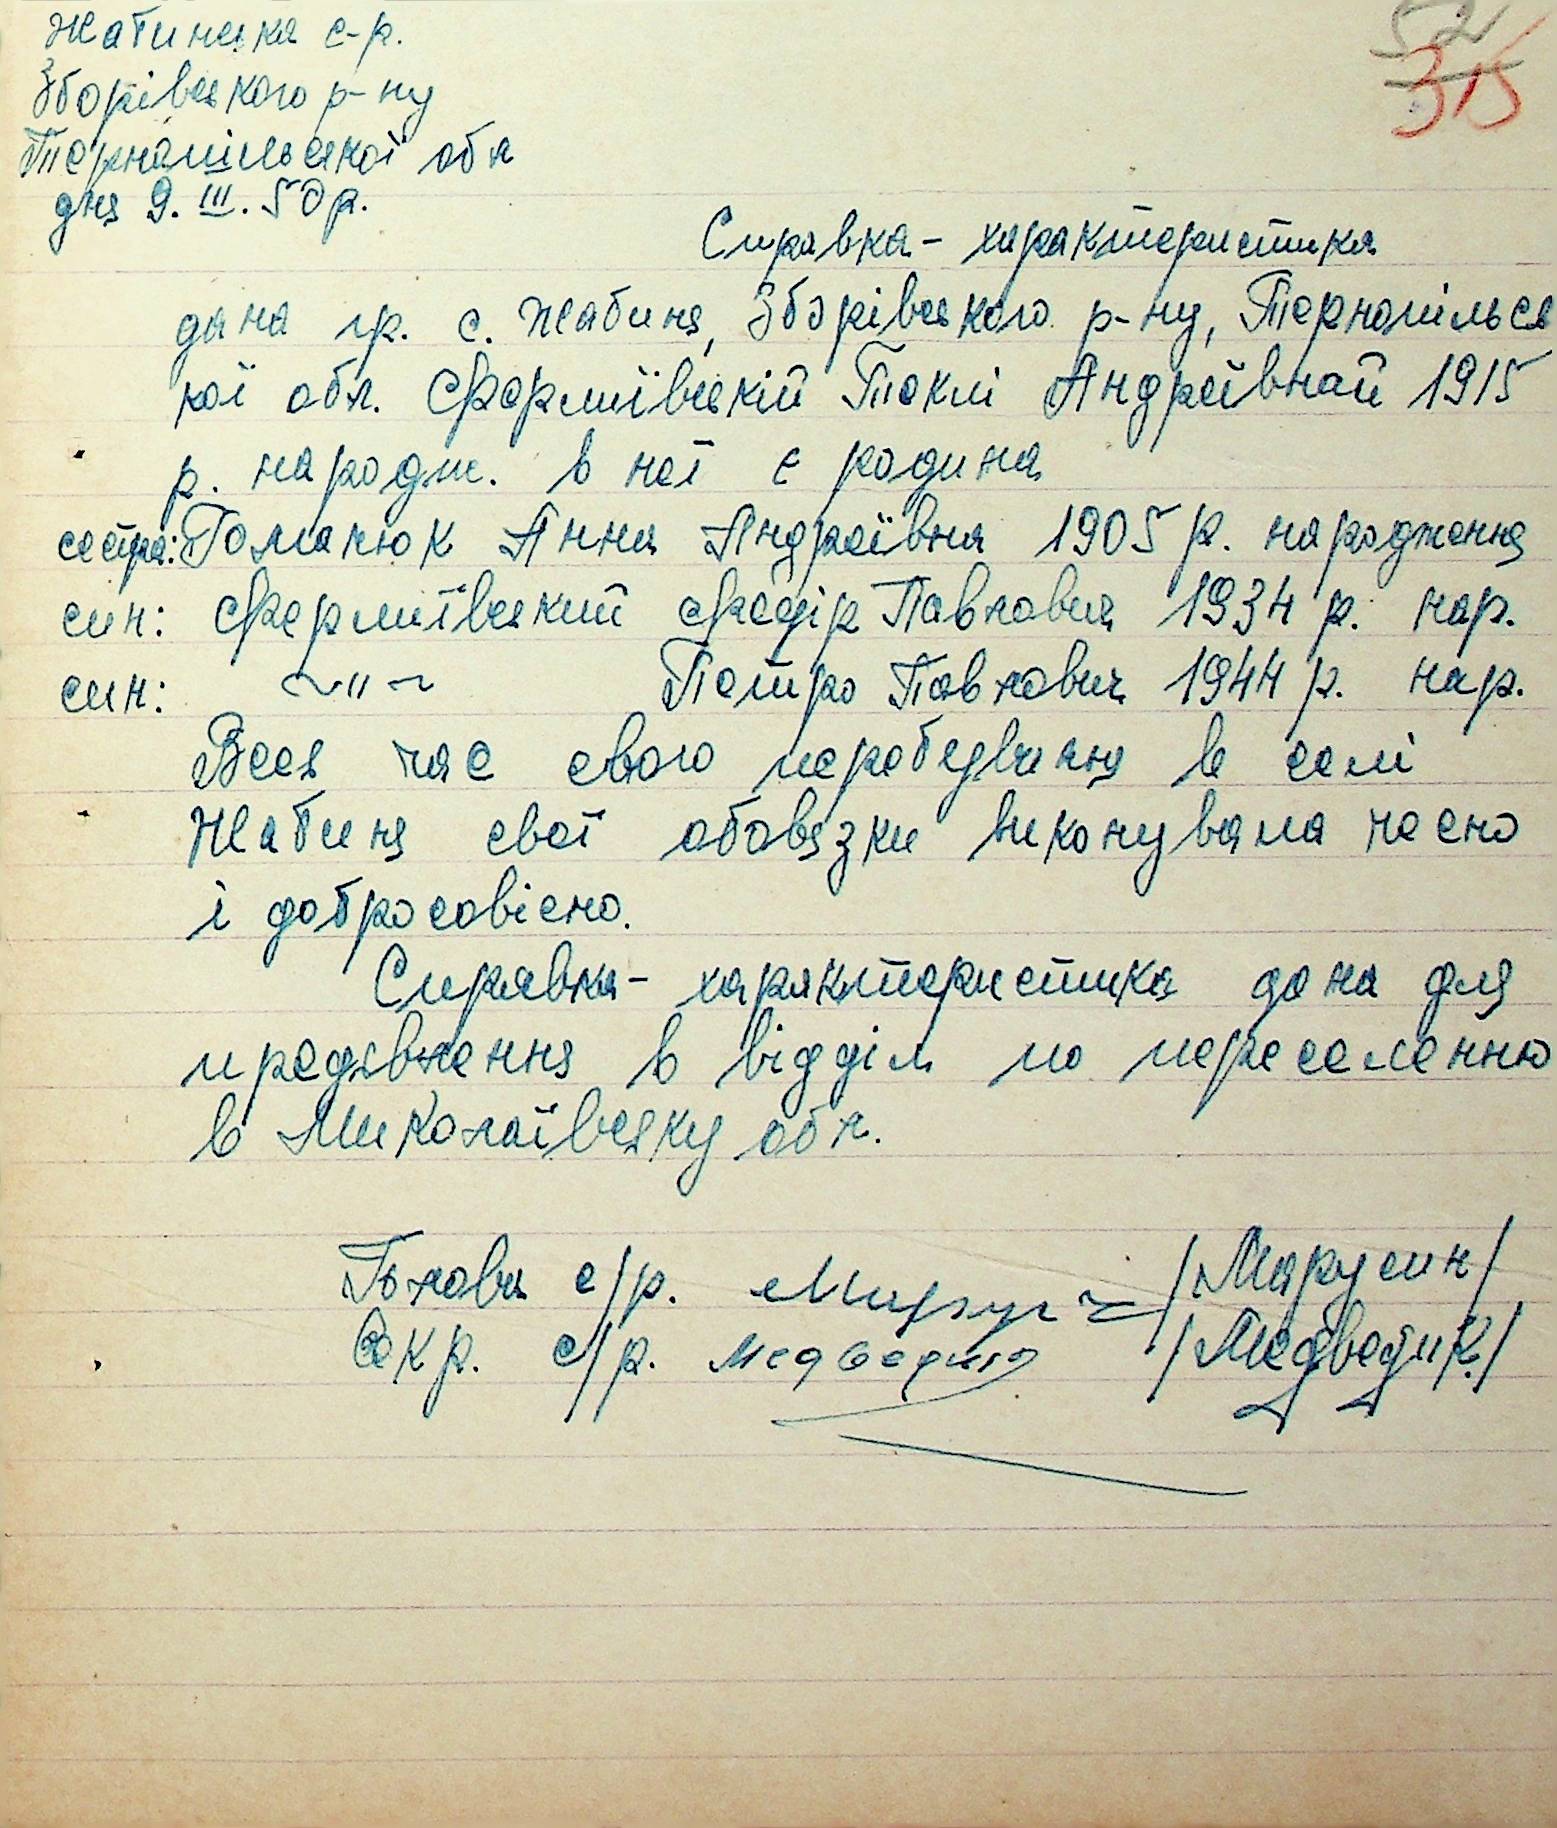 52
315
Жабинська с-р.
Зборівського р-ну
Тернопільської обл
дня 9. III. 50 р.
Справка - характеристика
дана гр. с. Жабиня, Зборівського р-ну, Тернопільсь
кої обл. Фермиївській Теклі Андреївнай 1915
р. народж. в неї є родина
сестра: Романюк Анна Андреївна 1905 р. народження
син: Фермиївский Федір Павлович 1934 р. нар.
син: ~"~ Петро Павлович 1944 р. нар.
Весь час свого перебедвичня в селі
Жабиня свої обовязки виконувала чесно
і добросовісно.
Справка - характеристика дана для
предявлення в відділ по переселенню
в Миколаївську обл.
Голова с/р. /Марусин/
Секр. с/р. Медведик /Медведик/